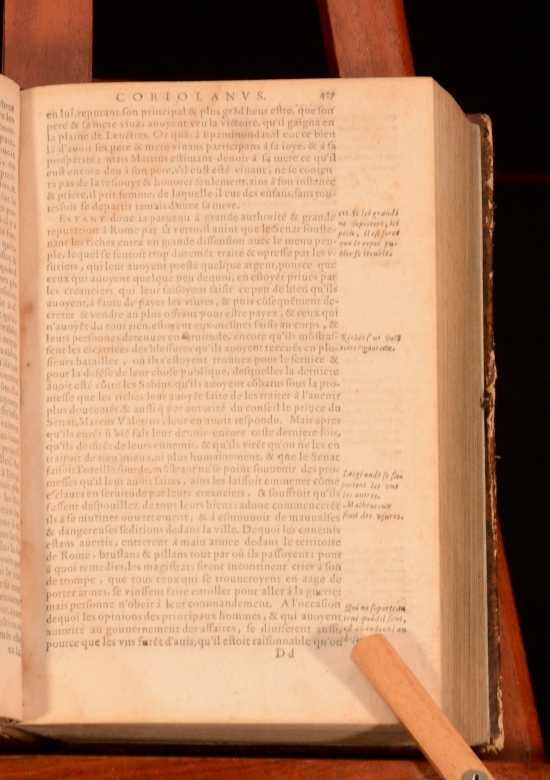 CORIOLANVS.
en lui, reputant son principal & plus grãd heur estre, que son
pere & sa mere viuãs auoyent veu la victoire, qu'il gaigna en
la plaine de Leuctres. Or quãt à Epaminondas, il eut ce bien
là d'auoir ses pere & mere viuans participans à sa ioye, & à sa
prosperité: mais Martius estimant deuoir à sa mere ce qu'il
eust encore deu à son pere, s'il eust esté viuant, ne se conten-
ta pas de la resiouyr & honorer seulement, ains à son instance
& priere, il prit femme, de laquelle il eut des enfans, sans tou-
tesfois se departir iamais d'auec sa mere.
ESTANT donc ia paruenu à grande authorité & grande
reputation à Rome par sa vertu, il auint que le Senat souste-
nant les riches entra en grande dissension auec le menu peu-
ple, lequel se sentoit trop durement traité & oppressé par les v-
suriers, qui leur auoyent presté quelque argent, pource que
ceux qui auoyent quelque peu dequoi, en estoyent priués par
les creanciers qui leur faisoyent saisir ce peu de bien qu'ils
auoyent, à faute de payer les vsures, & puis cõsequément de-
creter & vendre au plus offrant pour estre payez, & ceux qui
n'auoyẽt du tout rien, estoyent eux-mesmes saisis au corps, &
leurs personnes detenues en seruitude, encore qu'ils mõstras-
sent les cicatrices des blessures qu'ils auoyent receuës en plu-
sieurs batailles, où ils s'estoyent trouuez pour le seruice &
pour la defẽse de leur chose publique, desquelles la derniere
auoit esté cõtre les Sabins, qu'ils auoyent cõbatus sous la pro-
messe que les riches leur auoyẽt faite de les traiter à l'auenir
plus doucemẽt, & aussi q̃ par autorité du conseil le prince du
Senat, Marcus Valerius, leur en auoit respondu. Mais apres
qu'ils eurẽt si biẽ fait leur deuoir encore ceste derniere fois,
qu'ils desfirẽt de leurs ennemis, & qu'ils virẽt qu'on ne les en
traitoit de rien mieux, ni plus humainement, & que le Senat
faisoit l'oreille sourde, mõstrant ne se point souuenir des pro-
messes qu'il leur auoit faites, ains les laissoit emmener cõme
esclaues en seruitude par leurs creanciers, & souffroit qu'ils
fussent despouillez de tous leurs biens: adonc commencerẽt
ils à se mutiner ouuertement, & à esmouuoir de mauuaises
& dangereuses seditions dedans la ville. Dequoi les ennemis
estans auertis, entrerent à main armee dedans le territoire
de Rome, bruslans & pillans tout par où ils passoyent: pour
à quoi remedier, les magistrats firent incontinent crier à son
de trompe, que tous ceux qui se trouueroyent en aage de
porter armes, se vinssent faire enroller pour aller à la guerre:
mais personne n'obeit à leur commandement. A l'occasion
dequoi les opinions des principaux hommes, & qui auoyent
autorité au gouuernement des affaires, se diuiserent aussi,
pource que les vns furẽt d'auis, qu'il estoit raisonnable qu'on
Dd
III. Si les grands
ne supportent les
petis, il est force
que le repos pu-
blic se trouble.
Riches sur tous
vrays
Les grands se su-
portent les vns
les autres.
Malheureux
fruit des vsures.
Qui ne suporte en